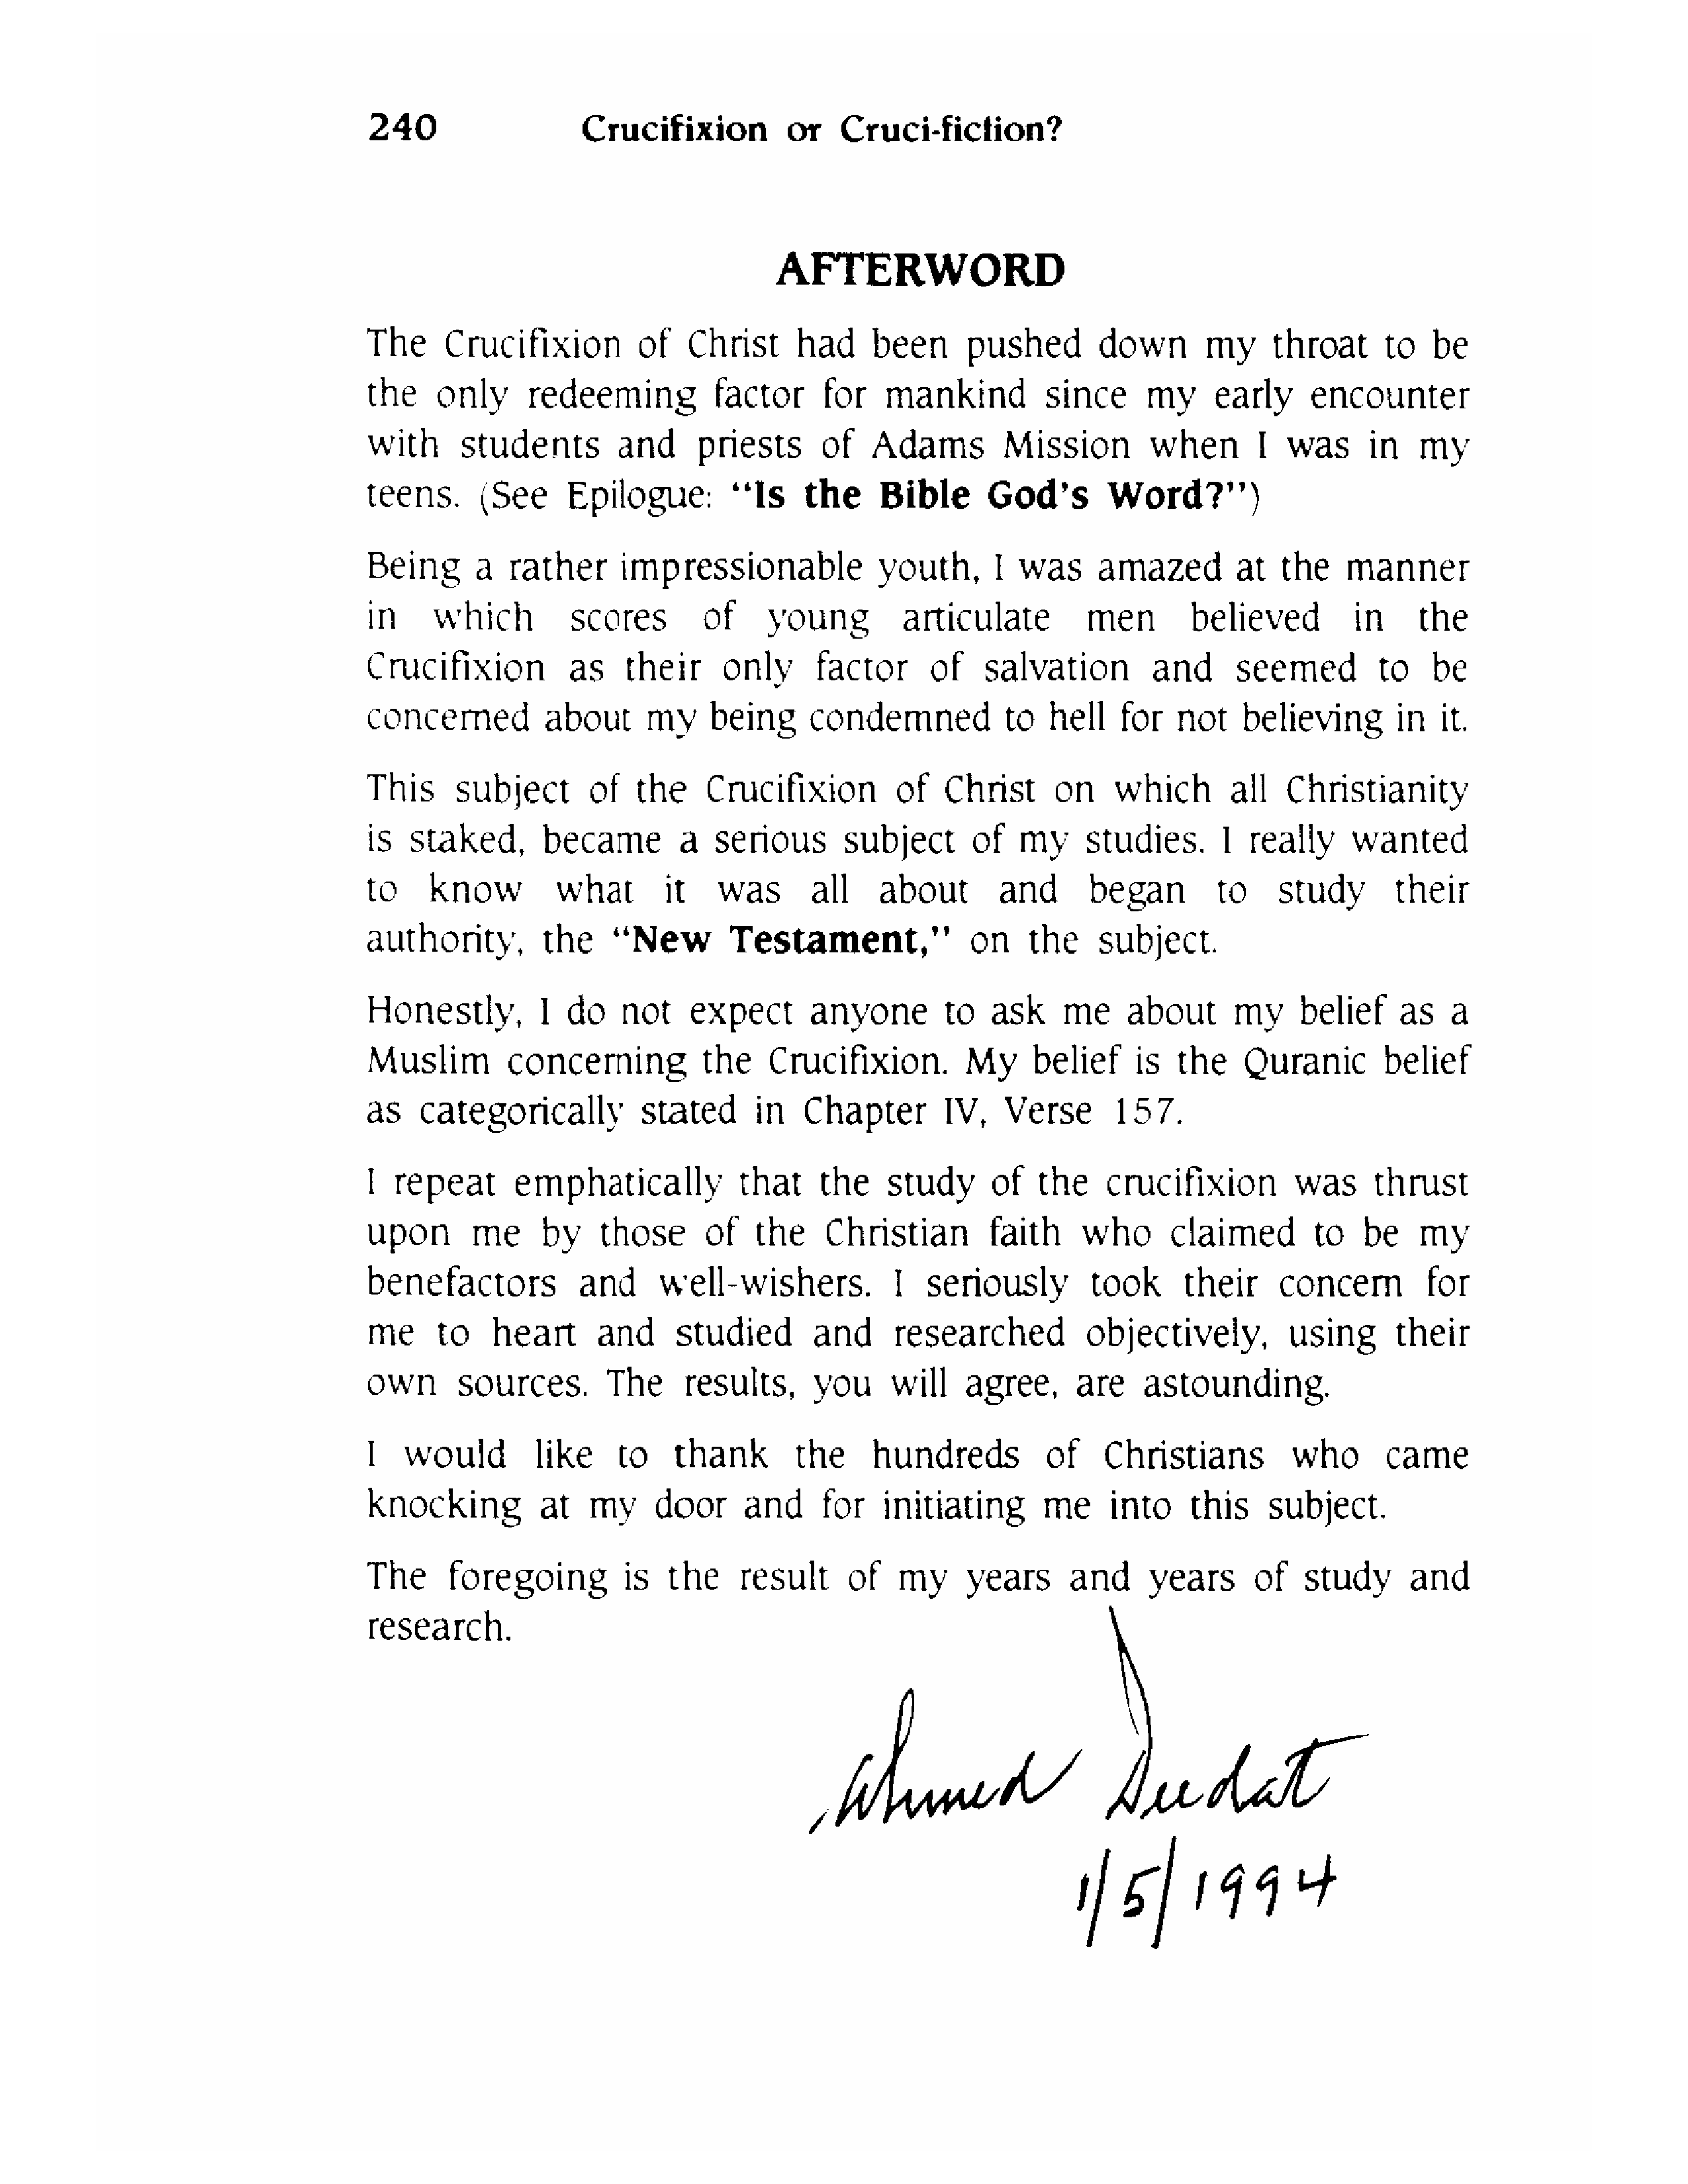 240 Crucifixion or Cruci-fiction?
AFTERWORD
The Crucifixion of Christ had been pushed down my throat to be
the only redeeming factor for mankind since my early encounter
with students and priests of Adams Mission when I was in my
teens. (See Epilogue: "Is the Bible God's Word?")
Being a rather impressionable youth, I was amazed at the manner
in which scores of young articulate men believed in the
Crucifixion as their only factor of salvation and seemed to be
concerned about my being condemned to hell for not believing in it.
This subject of the Crucifixion of Christ on which all Christianity
is staked, became a serious subject of my studies. I really wanted
to know what it was all about and began to study their
authority, the "New Testament," on the subject.
Honestly, I do not expect anyone to ask me about my belief as a
Muslim concerning the Crucifixion. My belief is the Quranic belief
as categorically stated in Chapter IV, Verse 157.
I repeat emphatically that the study of the crucifixion was thrust
upon me by those of the Christian faith who claimed to be my
benefactors and well-wishers. I seriously took their concern for
me to heart and studied and researched objectively, using their
own sources. The results, you will agree, are astounding.
I would like to thank the hundreds of Christians who came
knocking at my door and for initiating me into this subject.
The foregoing is the result of my years and years of study and
research.
Ahmed Deedat
1/5/1994